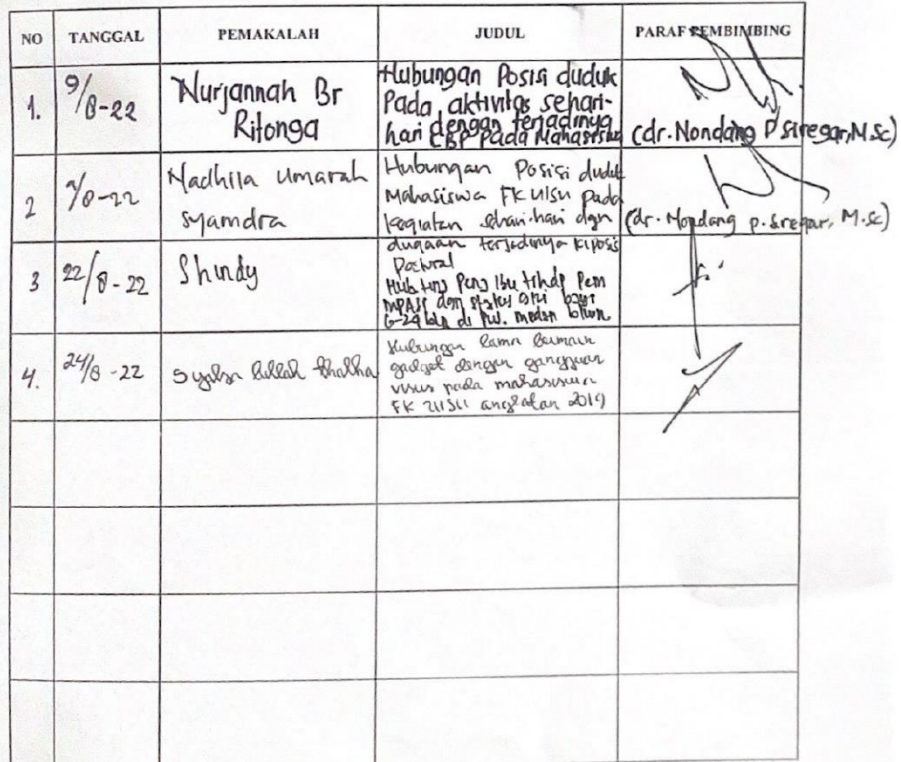 NO TANGGAL PEMAKALAH JUDUL PARAF PEMBIMBING
1. 9/8-22 Nurjannah Br Ritonga
Hubungan Posisi duduk
Pada aktivitas sehari-
hari dengan terjadinya
CBP pada Mahasiswa
(dr. Nondang P Siregar, M.Sc)
2 9/8-22 Nadhila Umarah Syamdra
Hubungan Posisi duduk
Mahasiswa FK UISU pada
kegiatan sehari-hari dgn
dugaan terjadinya kifosis
Postural
(dr. Nondang p. siregar, M.Sc)
3 22/8-22 Shindy
Hub ting Peng Ibu trhdp Pem
MPASI dan status gizi bayi
6-24 bln di medan
4. 24/8-22
Hubungan lama bermain
gadget dengan gangguan
visus pada mahasiswa
FK UISU angkatan 2019